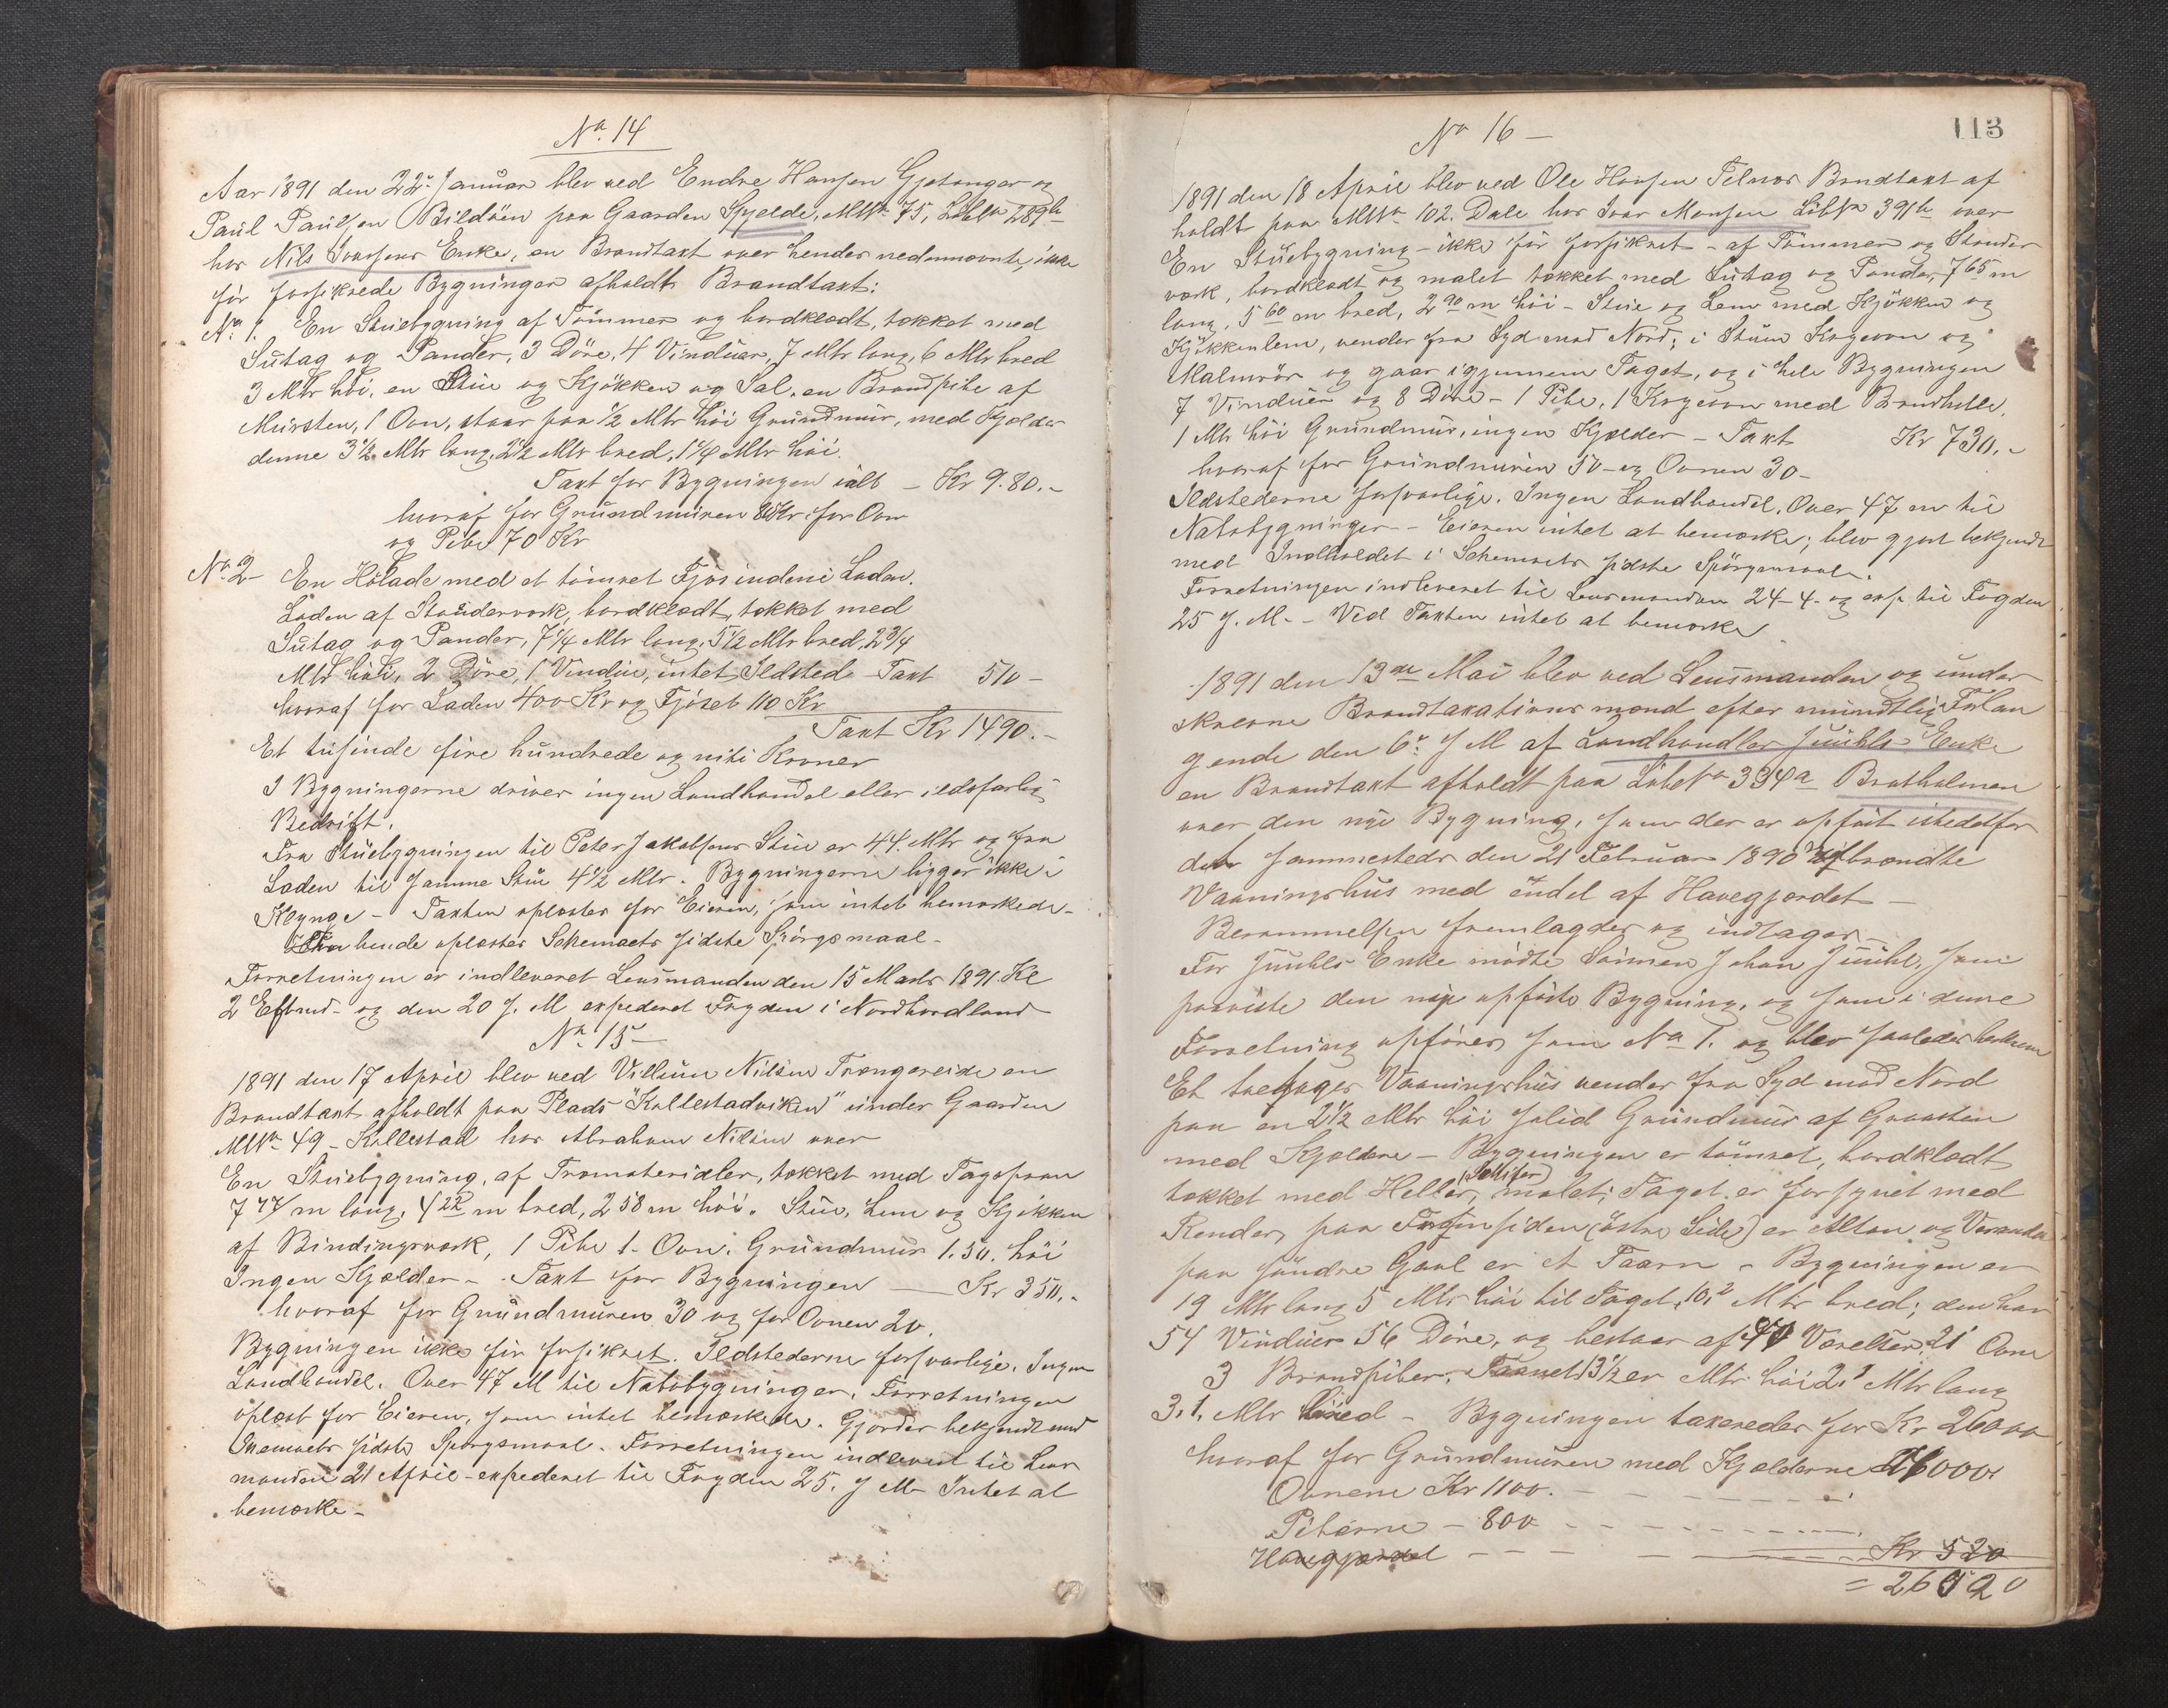 No. 14
Aar 1891 den 22de Januar blev ved Endre Hansen Gjetanger og
Paul Paulsen Bildöen paa Gaarden Spjelde, MtrNo 75, LöbNo 289b
hos Nils Ivarsens Enke, en Brandtaxt over hendes nedennævnte, ikke
för forsikrede Bygninger afholdt Brandtaxt:
No. 1. En Stuebygning af Tömmer og bordklædt, tækket med
Sutag og Pander, 3 Döre, 4 Vinduer, 7 Mtr lang, 6 Mtr bred
3 Mtr höi, en Stue og Kjökken og Sal, en Brandpibe af
Mursten, 1 Ovn, staar paa 1/2 Mtr höi Grundmur, med Kjelder
denne 3 1/2 Mtr lang, 2 1/2 Mtr bred, 1 1/4 Mtr höi.
Taxt for Bygningen ialt – Kr 980.–
hvoraf for Grundmuren Kr for Ovn
og Pibe 70 Kr
No. 2 – En Hölade med et tömret Fjös inden i Laden.
Laden af Stænderværk, bordklædt, tækket med
Sutag og Pander, 7 1/4 Mtr lang, 5 1/2 Mtr bred, 2 3/4
Mtr höi, 2 Döre, 1 Vindue, intet Ildsted – Taxt 510 –
hvoraf for Laden 400 Kr og Fjöset 110 Kr
Taxt Kr 1490.–
Et tusinde fire hundrede og niti Kroner
I Bygningerne drives ingen Landhandel eller ildsfarlig
Bedrift.
Fra Stuebygningen til Peter Jakobsens Stue er 44 Mtr og fra
Laden til samme Stue 4 1/2 Mtr. Bygningerne ligger ikke i
Klynge – Taxten oplæstes for Eieren, som intet bemærkede –
hende oplæstes Schemaets sidste Spörgsmaal –
Forretningen er indleveret Lensmanden den 15 Marts 1891 Kl
2 Eftmd – og den 20 s. M expederet Fogden i Nordhordland
No. 15 –
1891 den 17 April blev ved Villum Nilsen Trængereide en
Brandtaxt afholdt paa Plads "Kallestadviken" under Gaarden
MtrNo 49 – Kallestad hos Abraham Nilsen over
En Stuebygning, af Træmaterialer, tækket med Tagspaan
7 77 m lang, 4 22 m bred, 2 58 m höi. Stue, Lem og Kjökken
af Bindingsværk, 1 Pibe 1 – Ovn. Grundmur 1.50. höi
Ingen Kjælder – Taxt for Bygningen — Kr 350.–
hvoraf for Grundmuren 30 og for Ovnen 20.
Bygningen ikke för forsikret. Ildstederne forsvarlige. Ingen
Landhandel. Over 47 M til Nabobygninger. Forretningen
oplæst for Eieren, som intet bemærkede. Gjordes bekjendt med
Skemaets sidste Spörgsmaal. Forretningen indleveret til Lens
manden 21 April – expederet til Fogden 25. s M – Intet at
bemærke –
No 16 –
113
1891 den 18 April blev ved Ole Hansen Telnæs Brandtaxt af
holdt paa MtrNo 102. Dale hos Ivar Monsen LöbNo 391b over
En Stuebygning – ikke för forsikret – af Tömmer og Stænder
værk, bordklædt og malet tækket med Sutag og Pander, 7 65 m
lang, 5 60 m bred, 2 90 m höi – Stue og Lem med Kjökken og
Kjökkenlem, vender fra Syd mod Nord; i Stuen Kogeovn og
Malmrör og gaar igjennem Taget, og i hele Bygningen
7 Vinduer og 8 Döre – 1 Pibe, 1 Kogeovn med Brandhelle,
1 Mtr höi Grundmur, ingen Kjælder – Taxt Kr 730.–
hvoraf for Grundmuren 50 – og Ovnen 30 –
Ildstederne forsvarlige. Ingen Landhandel. Over 47 m til
Nabobygninger – Eieren intet at bemærke; blev gjort bekjendt
med Indholdet i Schemaets sidste Spörgsmaal.
Forretningen indleveret til Lensmanden 24–4. og exp. til Fogden
25 s. M. – Ved Taxten intet at bemærke
1891 den 13de Mai blev ved Lensmanden og under
skrevne Brandtaxationsmænd efter mundtlig Forlan
gende den 6te s M af Landhandler Juuhls Enke
en Brandtaxt afholdt paa LöbeNo 334a Bratholmen
over den nye Bygning, som der er opfört istedetfor
det sammesteds den 21 Februar 1890 afbrændte
Vaaningshus med endel af Havegjærdet –
Berammelsen fremlagdes og indtages –
For Juuhls Enke mödte Sönnen Johan Juuhl, som
paaviste den nye opförte Bygning, og som i denne
Forretning opföres som No 1. og blev saaledes
Et toetages Vaaningshus vender fra Syd mod Nord
paa en 2 1/2 Mtr höi solid Grundmur af Graasten
med Kjeldere – Bygningen er tömret, bordklædt
tækket med Heller, (Skifer) malet; Taget er forsynet med
Render, paa Forsiden (östre Side) er Altan og Veranda
paa söndre Gavl er et Taarn – Bygningen er
19 Mtr lang 5 Mtr höi til Taget, 10,2 Mtr bred; den har
54 Vinduer 56 Döre, og bestaar af Værelser, 21 Ovne
3 Brandpiber, Taarnet 13 1/2 er Mtr höi 2,1 Mtr lang
3,1, Mtr bred – Bygningen taxeredes for Kr 26000
hvoraf for Grundmuren med Kjelderne 6000
Ovnene Kr 1100. – – – –
Piberne – 800 – – – –
Havegjærdet – – – – Kr 520
= 26520